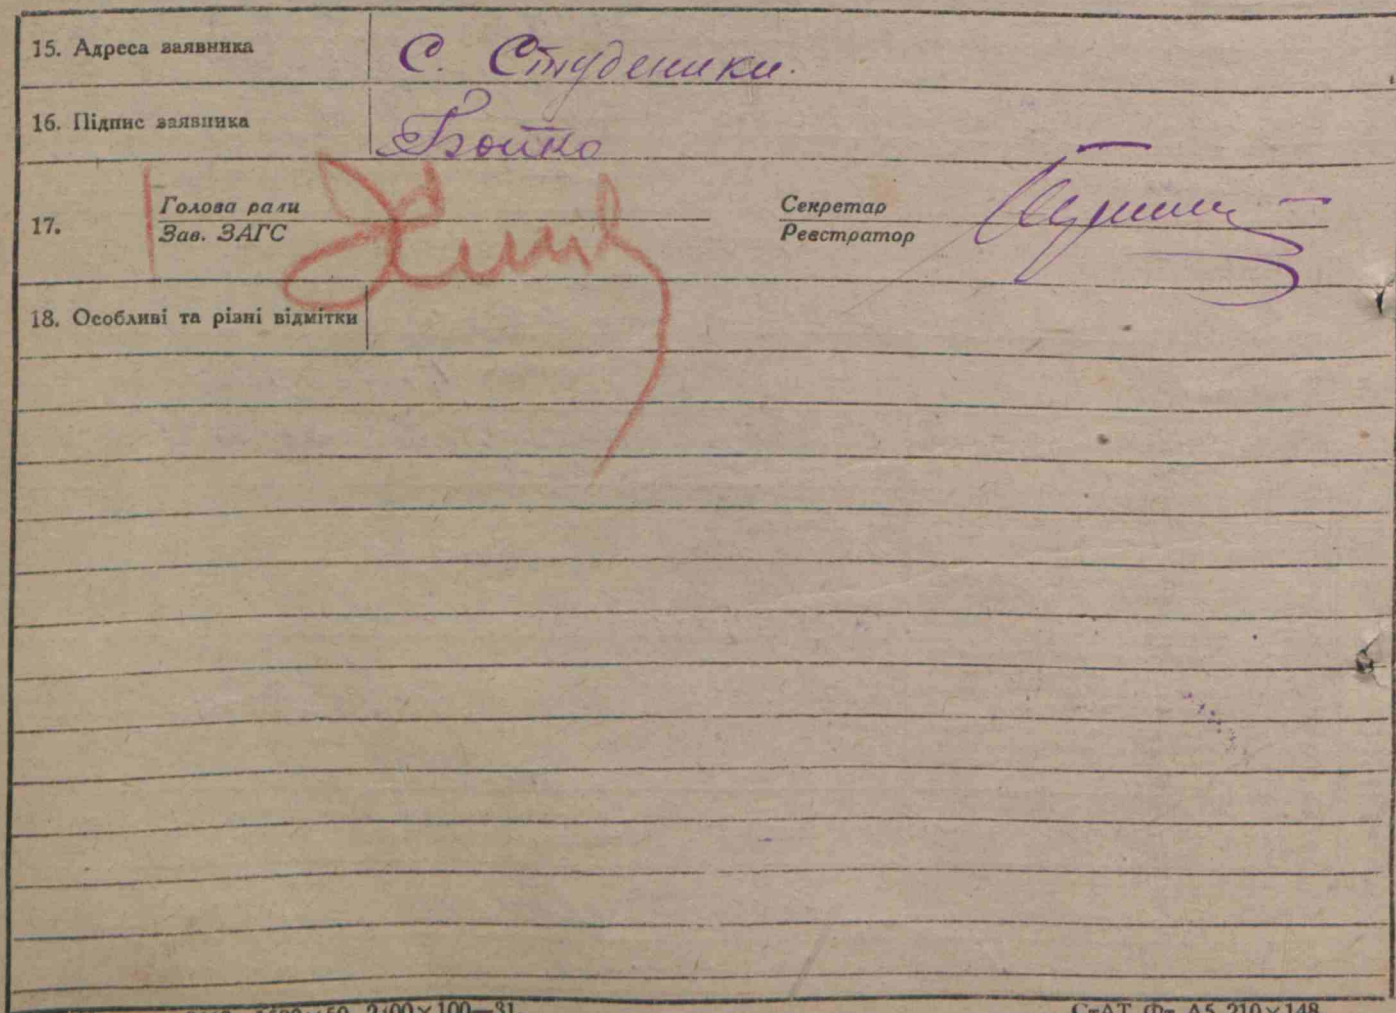 15. Адреса заявника С. Студеники.
16. Підпис заявника Бойко
17. Голова ради Секретар
Зав. ЗАГС Реєстратор
18. Особливі та різні відмітки
2400×100—31 СтАТ Фт А5 210×148